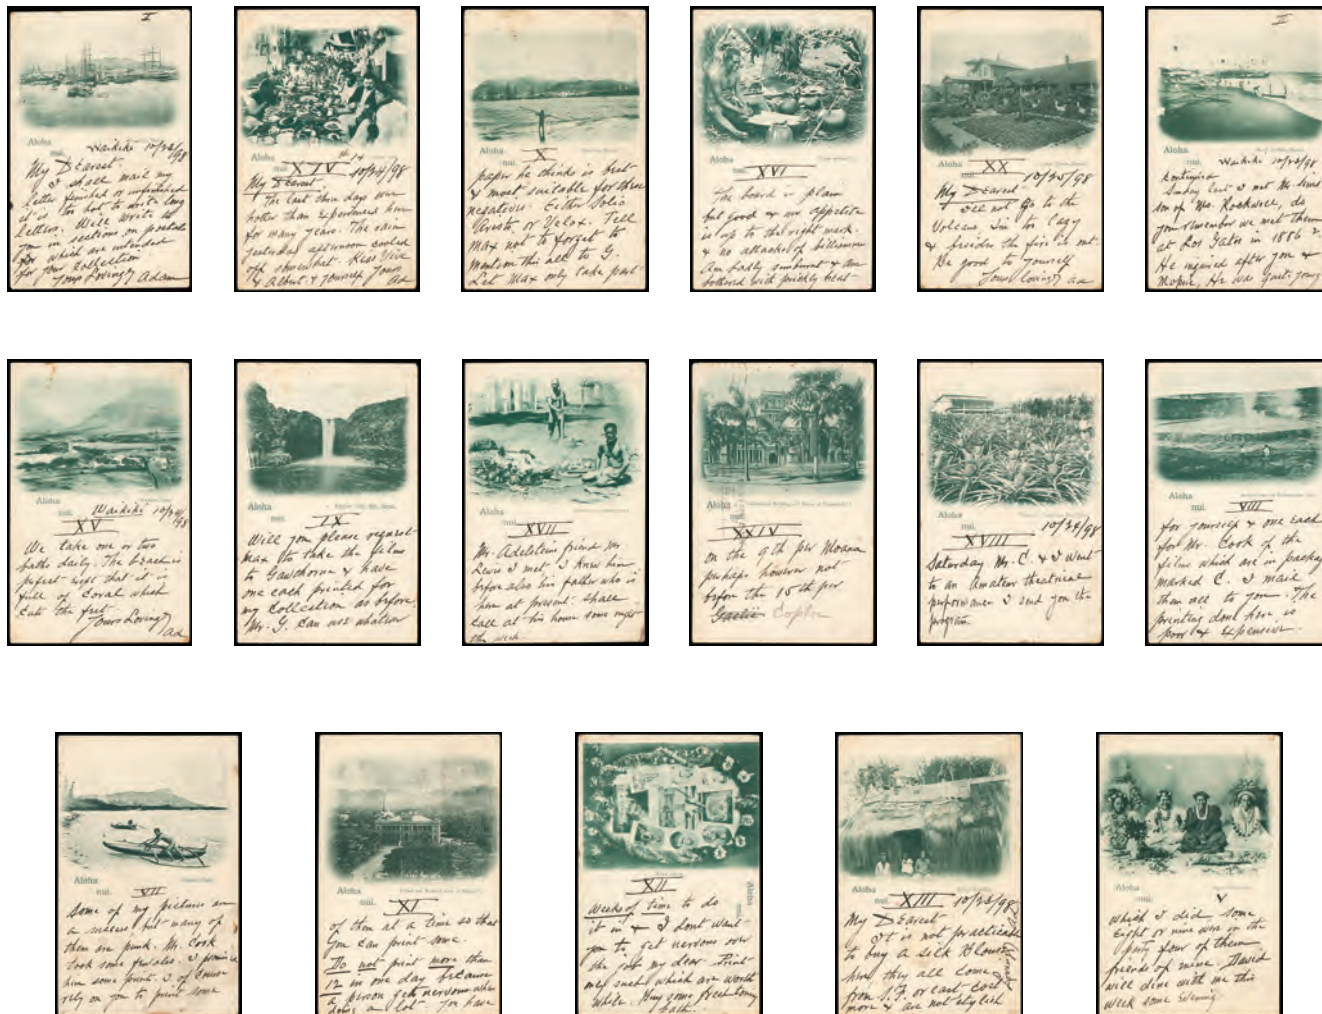 I
Aloha
nui.
Waikiki 10/22/98
My Dearest
I shall mail my
letter finished or unfinished
it is too hot to write long
letters. Will write to
you in sections on postals
for which are intended
for your Collection
Yours Loving Adam
Aloha
nui.
XIV
10/24/98
My Dearest
The last three days were
hotter than experienced here
for many years. The rain
yesterday afternoon cooled
off somewhat. Kiss
& Albert & yourself Yours
Ad
Aloha
nui.
X
paper he thinks is best
& most suitable for these
negatives. Either Solio
Aristo, or Velox. Tell
Max not to forget to
mention this all to G.
Let Max only take part
Aloha
nui.
XVI
The board is plain
but good & my appetite
is up to the right mark.
& no attacks of
Am badly sunburnt & am
bothered with prickly heat
Aloha
nui.
XX
10/25/98
My Dearest
Will not go to the
Volcano I'm too lazy
& besides the fire is out.
Be good to yourself
Yours Loving Ad
II
Aloha
nui.
Waikiki 10/22/98
Continued
Sunday last I met Mr.
son of Mrs. Rockwell, do
you remember we met them
at Los Gatos in 1886?
He inquired after you &
He was quite young
Aloha
nui.
Waikiki 10/24/98
XV
We take one or two
baths daily. The beach is
perfect except that it is
full of Coral which
cuts the feet.
Yours Loving
Ad
Aloha
nui.
IX
Will you please request
Max to take the films
to Gawthorne & have
one each printed for
my Collection as before.
Mr. G. can use whatever
Aloha
nui.
XVII
Mr. Adelsteins friend Mr
Lewis I met I knew him
before also his father who is
here at present. Shall
call at his home some night
this week
Aloha
nui.
XXIV
on the 9th per Moana
perhaps however not
before the 15th per
Gaelic Coptic
Aloha
nui.
10/24/98
XVIII
Saturday Mr. C. & I went
to an Amateur theatrical
performance I send you the
program
Aloha
nui.
VIII
for yourself & one each
for Mr. Cook of the
films which are in package
marked C. I mail
them all to you. The
printing done here is
poor & expensive.
Aloha
nui.
VII
Some of my pictures are
a success but many of
them are punk. Mr. Cook
took some few also. I promised
him some prints. I of course
rely on you to print some
Aloha
nui.
XI
of them at a time so that
you can print some.
Do not print more than
12 in one day because
a person gets nervous when
doing a lot You have
Aloha
nui.
XII
weeks of time to do
it in & I dont want
you to get nervous over
the job my dear Print
only such which are worth
while. Buy some fresh toning
bath.
Aloha
nui.
XIII
10/23/98
My Dearest
It is not practicable
to buy a silk Blouse
here they all come
from S.F. or east cost
more & are not stylish
Aloha
nui.
V
which I did, some
Eight or nine were in the
party four of them
friends of mine. David
will dine with me this
week some Evening